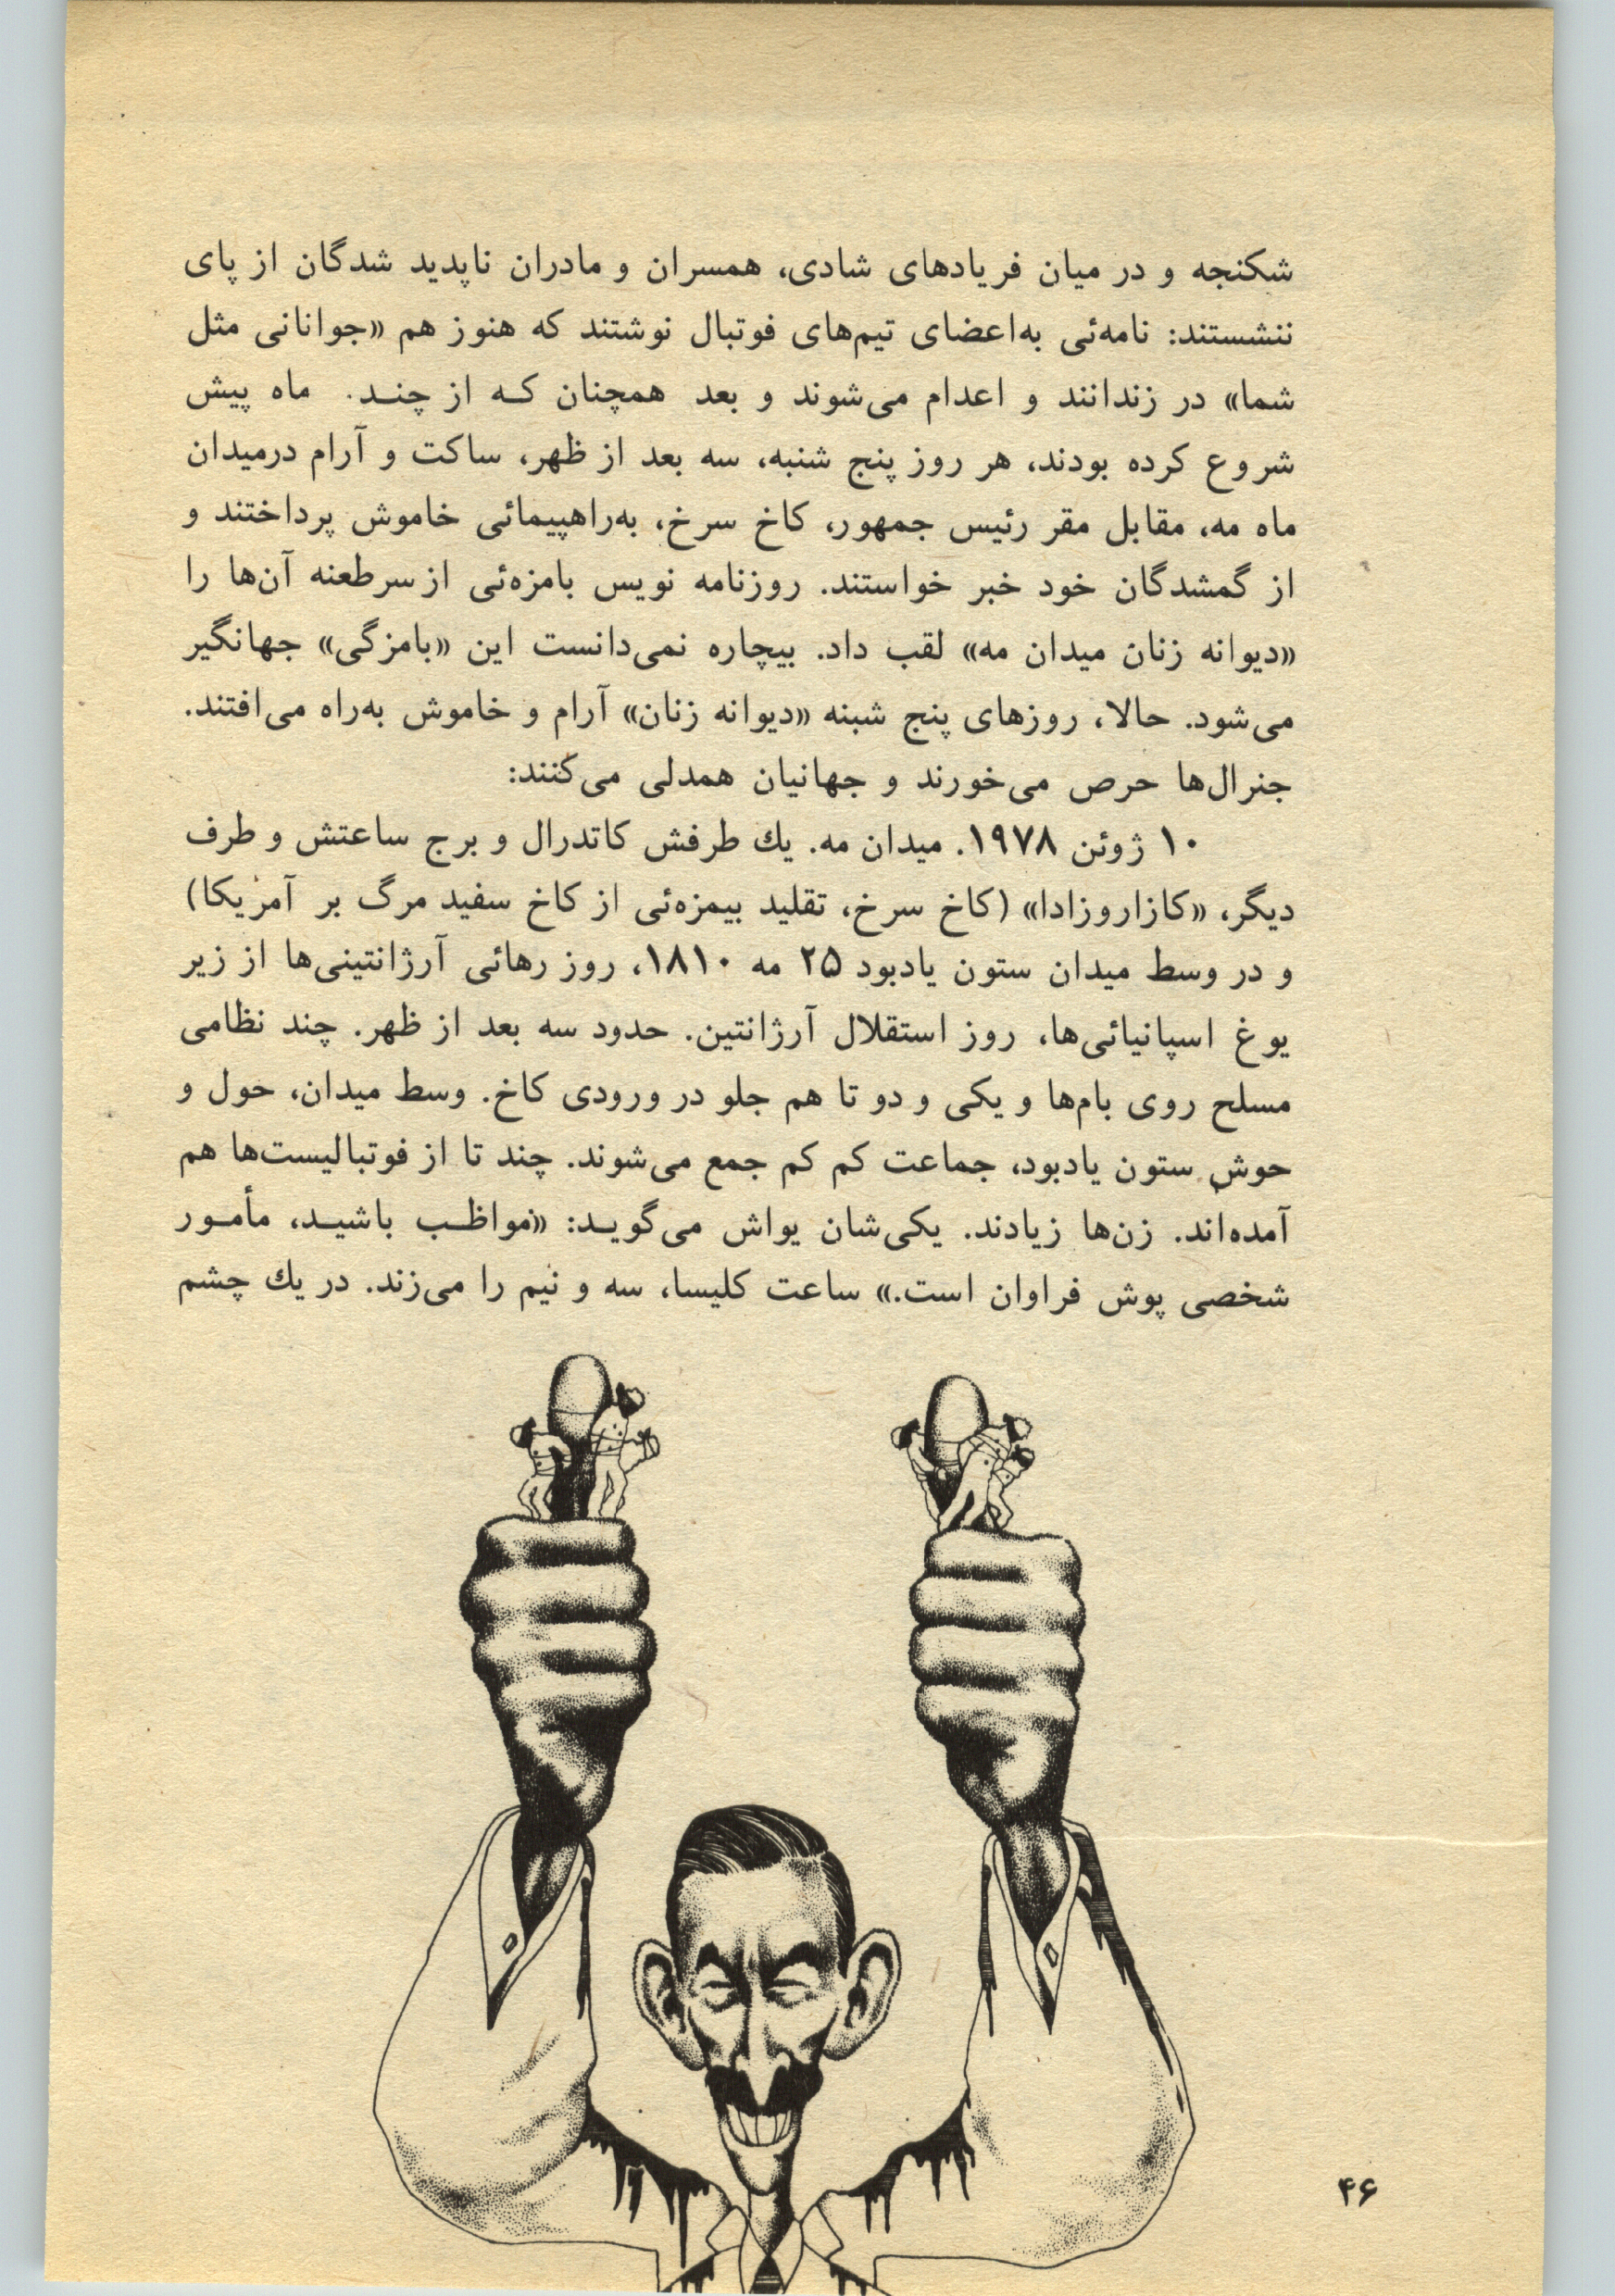 شکنجه و در میان فریادهای شادی، همسران و مادران ناپدید شدگان از پای
ننشستند: نامه‌ئی به‌اعضای تیم‌های فوتبال نوشتند که هنوز هم «جوانانی مثل
شما» در زندانند و اعدام می‌شوند و بعد همچنان کـه از چنـد ماه پیش
شروع کرده بودند، هر روز پنج شنبه، سه بعد از ظهر، ساکت و آرام درمیدان
ماه مه، مقابل مقر رئیس جمهور، کاخ سرخ، به‌راهپیمائی خاموش پرداختند و
از گمشدگان خود خبر خواستند. روزنامه نویس بامزه‌ئی ازسرطعنه آن‌ها را
«دیوانه زنان میدان مه» لقب داد. بیچاره نمی‌دانست این «بامزگی» جهانگیر
می‌شود. حالا، روزهای پنج شبنه «دیوانه زنان» آرام و خاموش به‌راه می‌افتند.
جنرال‌ها حرص می‌خورند و جهانیان همدلی می‌کنند:
۱۰ ژوئن ۱۹۷۸. میدان مه. یك طرفش کاتدرال و برج ساعتش و طرف
دیگر، «کازاروزادا» (کاخ سرخ، تقلید بیمزه‌ئی از کاخ سفید مرگ بر آمریکا)
و در وسط میدان ستون یادبود ۲۵ مه ۱۸۱۰، روز رهائی آرژانتینی‌ها از زیر
یوغ اسپانیائی‌ها، روز استقلال آرژانتین. حدود سه بعد از ظهر. چند نظامی
مسلح روی بام‌ها و یکی و دو تا هم جلو در ورودی کاخ. وسط میدان، حول و
حوش ستون یادبود، جماعت کم کم جمع می‌شوند. چند تا از فوتبالیست‌ها هم
آمده‌اند. زن‌ها زیادند. یکی‌شان یواش می‌گویـد: «مواظـب باشیـد، مأمـور
شخصی پوش فراوان است.» ساعت کلیسا، سه و نیم را می‌زند. در یك چشم
۴۶